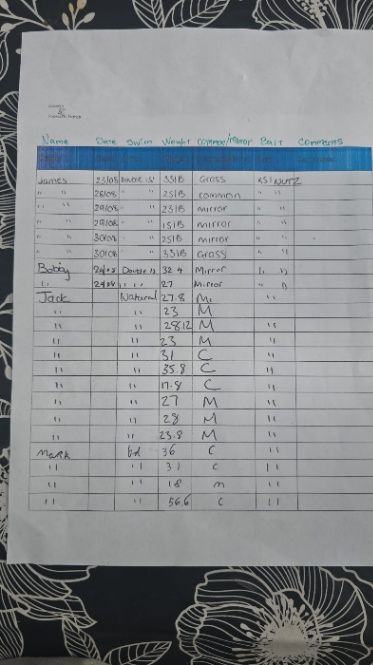 Name Date Swim Weight common/mirror Bait Comments
James 25/08 Double 'S' 33lB Grass RS1 NUTZ
" " 26/08 " " 25lB common " "
" " 29/08 " " 23lB mirror " "
" " 29/08 " " 15lB mirror " "
" " 30/08 " " 25lB mirror " "
" " 30/08 " " 33lB Grass " "
Bobby Double 32 4 Mirror " "
" " " 27 Mirror " "
Jack Natural 27.8 M. " "
" " 23 M
" " 28 12 M "
" " 23 M "
" " 31 C "
" " 35.8 C "
" " 17.8 C "
" " 27 M "
" " 28 M "
" " 23.8 M "
Mark 36 C " "
" " 31 C " "
" " 18 m " "
" " 56.6 C " "